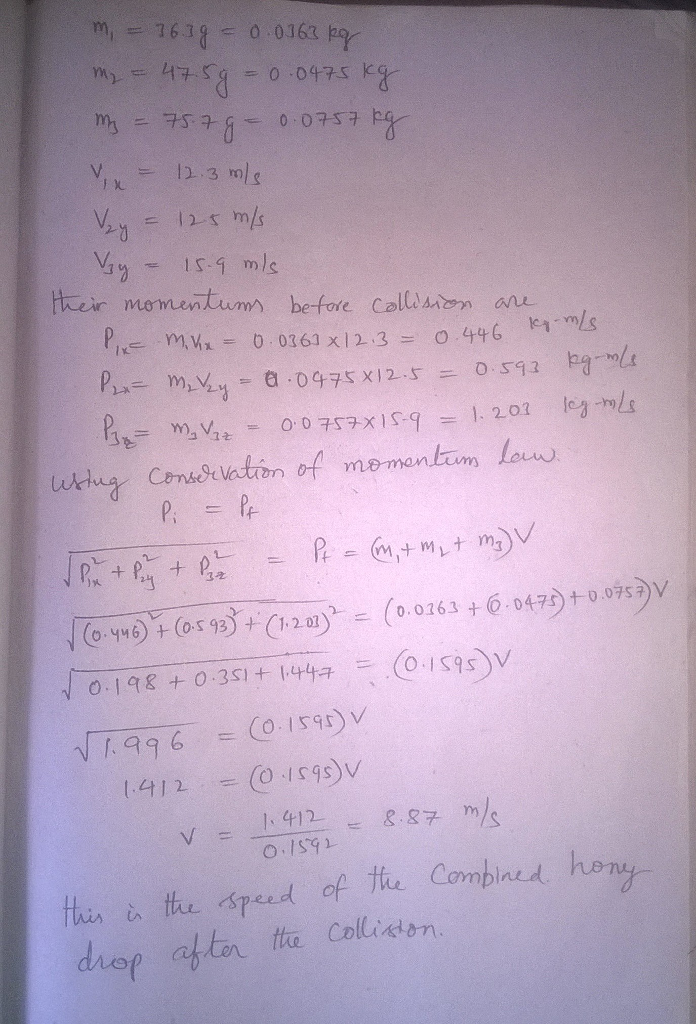 m₁ = 36.3g = 0.0363 kg
m₂ = 47.5g = 0.0475 kg
m₃ = 75.7g = 0.0757 kg
V₁ₓ = 12.3 m/s
V₂y = 12.5 m/s
V₃y = 15.9 m/s
their momentums before collision are
P₁ₓ = m₁V₁ₓ = 0.0363 x 12.3 = 0.446 kg-m/s
P₂ₓ = m₂V₂y = 0.0475 x 12.5 = 0.593 kg-m/s
P₃z = m₃V₃z = 0.0757 x 15.9 = 1.203 kg-m/s
using conservation of momentum law.
Pi = Pf
√(P₁ₓ² + P₂y² + P₃z²) = Pf = (m₁ + m₂ + m₃)V
√((0.446)² + (0.593)² + (1.203)²) = (0.0363 + 0.0475) + 0.0757)V
√(0.198 + 0.351 + 1.447) = (0.1595)V
√1.996 = (0.1595)V
1.412 = (0.1595)V
V = 1.412/0.1592 = 8.87 m/s
this is the speed of the combined hony
drop after the collision.